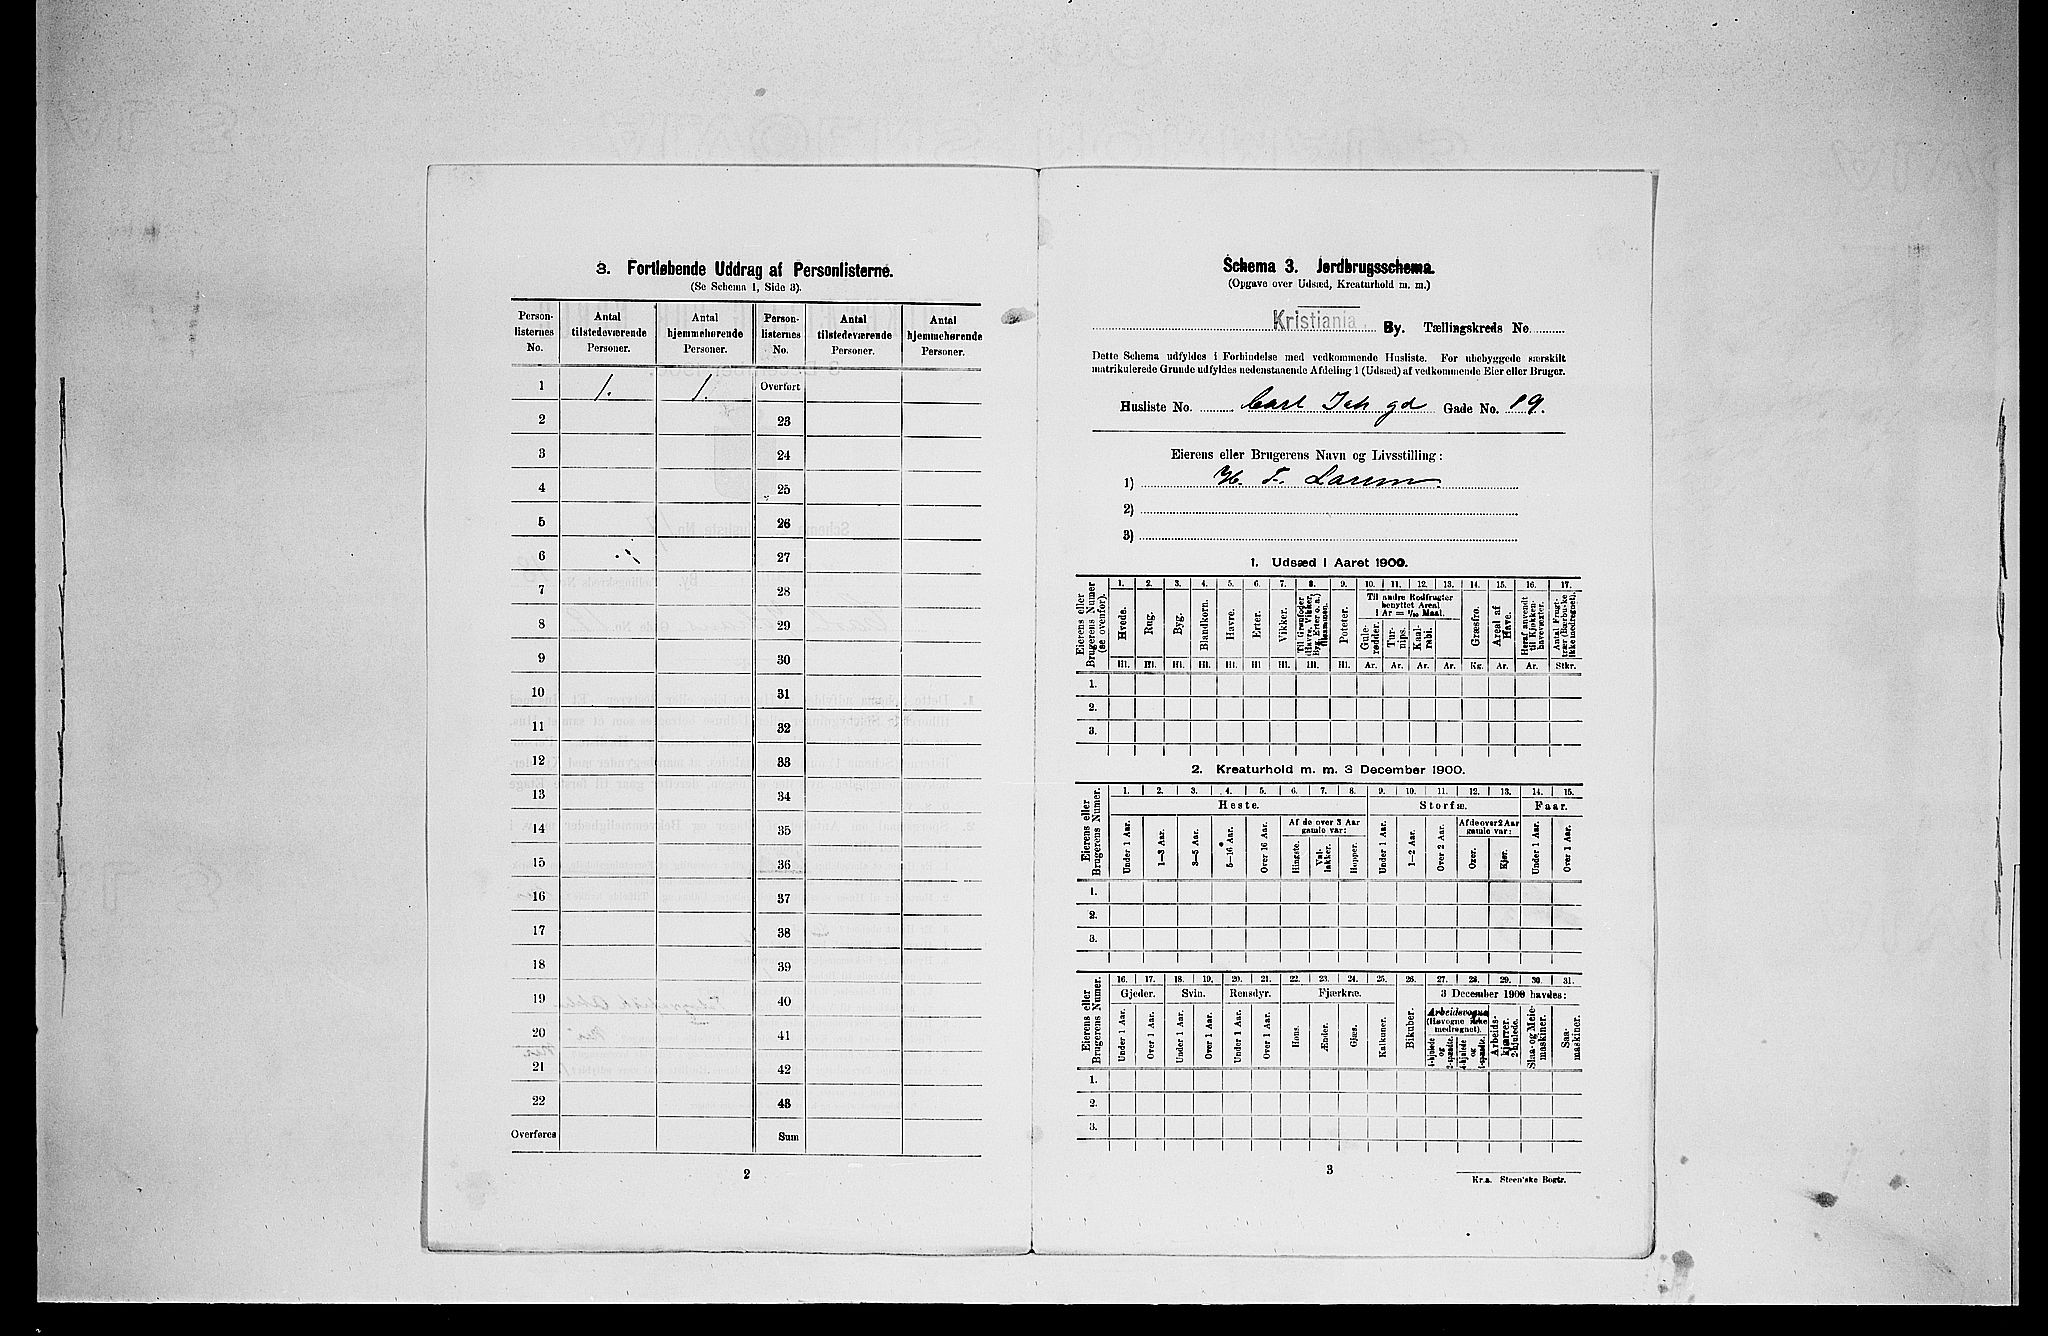 3. Fortløbende Uddrag af Personlisterne.
(Se Schema 1, Side 3).
Person-listernes No. Antal tilstedeværende Personer. Antal hjemmehørende Personer. Person-listernes No. Antal tilstedeværende Personer. Antal hjemmehørende Personer.
1 1. 1. Overført
2 23
3 24
4 25
5 26
6 27
7 28
8 29
9 30
10 31
11 32
12 33
13 34
14 35
15 36
16 37
17 38
18 39
19 40
20 41
21 42
22 43
Overføres Sum
2
Schema 3. Jordbrugsschema.
(Opgave over Udsæd, Kreaturhold m. m.)
Kristiania By. Tællingskreds No
Dette Schema udfyldes i Forbindelse med vedkommende Husliste. For ubebyggede særskilt
matrikulerede Grunde udfyldes nedenstaaende Afdeling 1 (Udsæd) af vedkommende Eier eller Bruger.
Husliste No. Carl Joh gd Gade No. 19.
Eierens eller Brugerens Navn og Livsstilling:
1) H. F. Larsen
2)
3)
1. Udsæd i Aaret 1900.
Eierens eller Brugerens Numer (se ovenfor).
1. 2. 3. 4. 5. 6. 7. 8. 9. 10. 11. 12. 13. 14. 15. 16. 17.
Til andre Rodfrugter benyttet Areal 1 Ar = 1/10 Maal.
Hvede. Rug. Byg. Blandkorn. Havre. Erter. Vikker. Til Grønfoder (Havre, Vikker, Byg, Erter o. a.) tilsammen. Poteter. Gule-rødder. Tur-nips. Kaal-rabi. Græsfrø. Areal af Have. Heraf anvendt til Kjøkken-havevæxter. Antal Frugt-trær (Bærbuske ikke medregnet).
Hl. Hl. Hl. Hl. Hl. Hl Hl. Hl. Hl. Ar. Ar. Ar. Ar. Kg. Ar. Ar. Stkr.
1.
2.
3.
2. Kreaturhold m. m. 3 December 1900.
Eierens eller Brugerens Numer.
1. 2. 3. 4. 5. 6. 7. 8. 9. 10. 11. 12. 13. 14. 15.
Heste. Storfæ. Faar.
Af de over 3 Aar gamle var: Af de over 2 Aar gamle var:
Under 1 Aar. 1—3 Aar. 3—5 Aar. 5—16 Aar. Over 16 Aar. Hingste. Val-lakker. Hopper. Under 1 Aar. 1—2 Aar. Over 2 Aar. Oxer. Kjør. Under 1 Aar. Over 1 Aar.
1.
2.
3.
Eierens eller Brugerens Numer.
16. 17. 18. 19. 20. 21. 22. 23. 24. 25. 26. 27. 28. 29. 30. 31.
Gjeder. Svin. Rensdyr. Fjærkræ. Bikuber. 3 December 1900 havdes:
Arbeidsvogne (Høvogne ikke medregnet).
Under 1 Aar. Over 1 Aar. Under 1 Aar. Over 1 Aar. Under 1 Aar. Over 1 Aar. Høns. Ænder. Gjæs. Kalkuner. 4-hjulede og 2-spændte. 4-hjulede og 1-spændte. Arbeids-kjærrer, 2-hjulede. Slaa- og Meie-maskiner. Saa-maskiner.
1.
2.
3.
3
Kr.a. Steen'ske Bogtr.